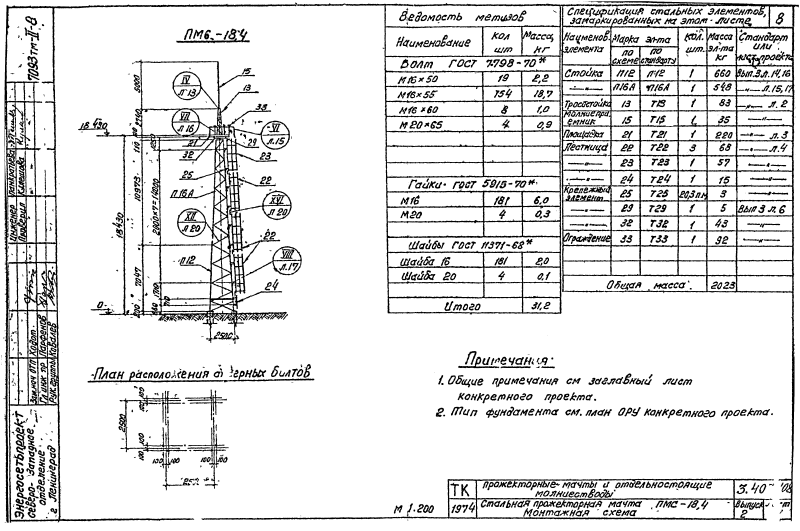 7093тм-II-8
ПМ6-18,4
15
IV
л 13
13
38
VII
л 16
VI
л.15
18 430
21
32
29
23
25
22
П 16А
XII
л 20
XVI
л 20
22
П12
VIII
л.17
24
3000
10973
2000×7=14000
18430
7047
0
2500
План расположения анкерных болтов
100 100
2500
100 100
100 100
100 100
М 1:200
Ведомость метизов
Наименование | кол шт | Масса, кг
Болт ГОСТ 7798-70*
М16×50 | 19 | 2,2
М16×55 | 154 | 18,7
М16×60 | 8 | 1,0
М20×65 | 4 | 0,9
Гайки ГОСТ 5915-70*
М16 | 181 | 6,0
М20 | 4 | 0,3
Шайбы ГОСТ 11371-68*
Шайба 16 | 181 | 2,0
Шайба 20 | 4 | 0,1
Итого | 31,2
Спецификация стальных элементов, замаркированных на этом листе | 8
Наименов элемента | Марка эл-та по схеме | по стандарту | кол. шт. | Масса эл-та кг | Стандарт или лист проекта
Стойка | П12 | П12 | 1 | 660 | Вып.3 л.14,16
—"— | П16А | П16А | 1 | 548 | —"— л.15,17
Тросостойка | 13 | Т13 | 1 | 83 | —"— л.2
Молниеприемник | 15 | Т15 | 1 | 35 | —"—
Площадка | 21 | Т21 | 1 | 220 | —"— л.3
Лестница | 22 | Т22 | 3 | 68 | —"— л.4
—"— | 23 | Т23 | 1 | 57 | —"—
—"— | 24 | Т24 | 1 | 15 | —"—
Крепежный элемент | 25 | Т25 | 20,3 пм | 3 | —"—
—"— | 29 | Т29 | 1 | 5 | Вып 3 л.6
—"— | 32 | Т32 | 1 | 43 | —"—
Ограждение | 33 | Т33 | 1 | 92 | —"—
Общая масса: | 2023
Примечания:
1. Общие примечания см заглавный лист
конкретного проекта.
2. Тип фундамента см. план ОРУ конкретного проекта.
Инженер Панкратова
Проверил Климова
Зам.нач ОТП
Гл инж пр Парфенов
Рук. группы Ковалев
Энергосетьпроект
Северо-Западное
отделение
г Ленинград
ТК | Прожекторные мачты и отдельностоящие молниеотводы
1974 | Стальная прожекторная мачта ПМС-18,4
Монтажная схема
3.40
Выпуск
2